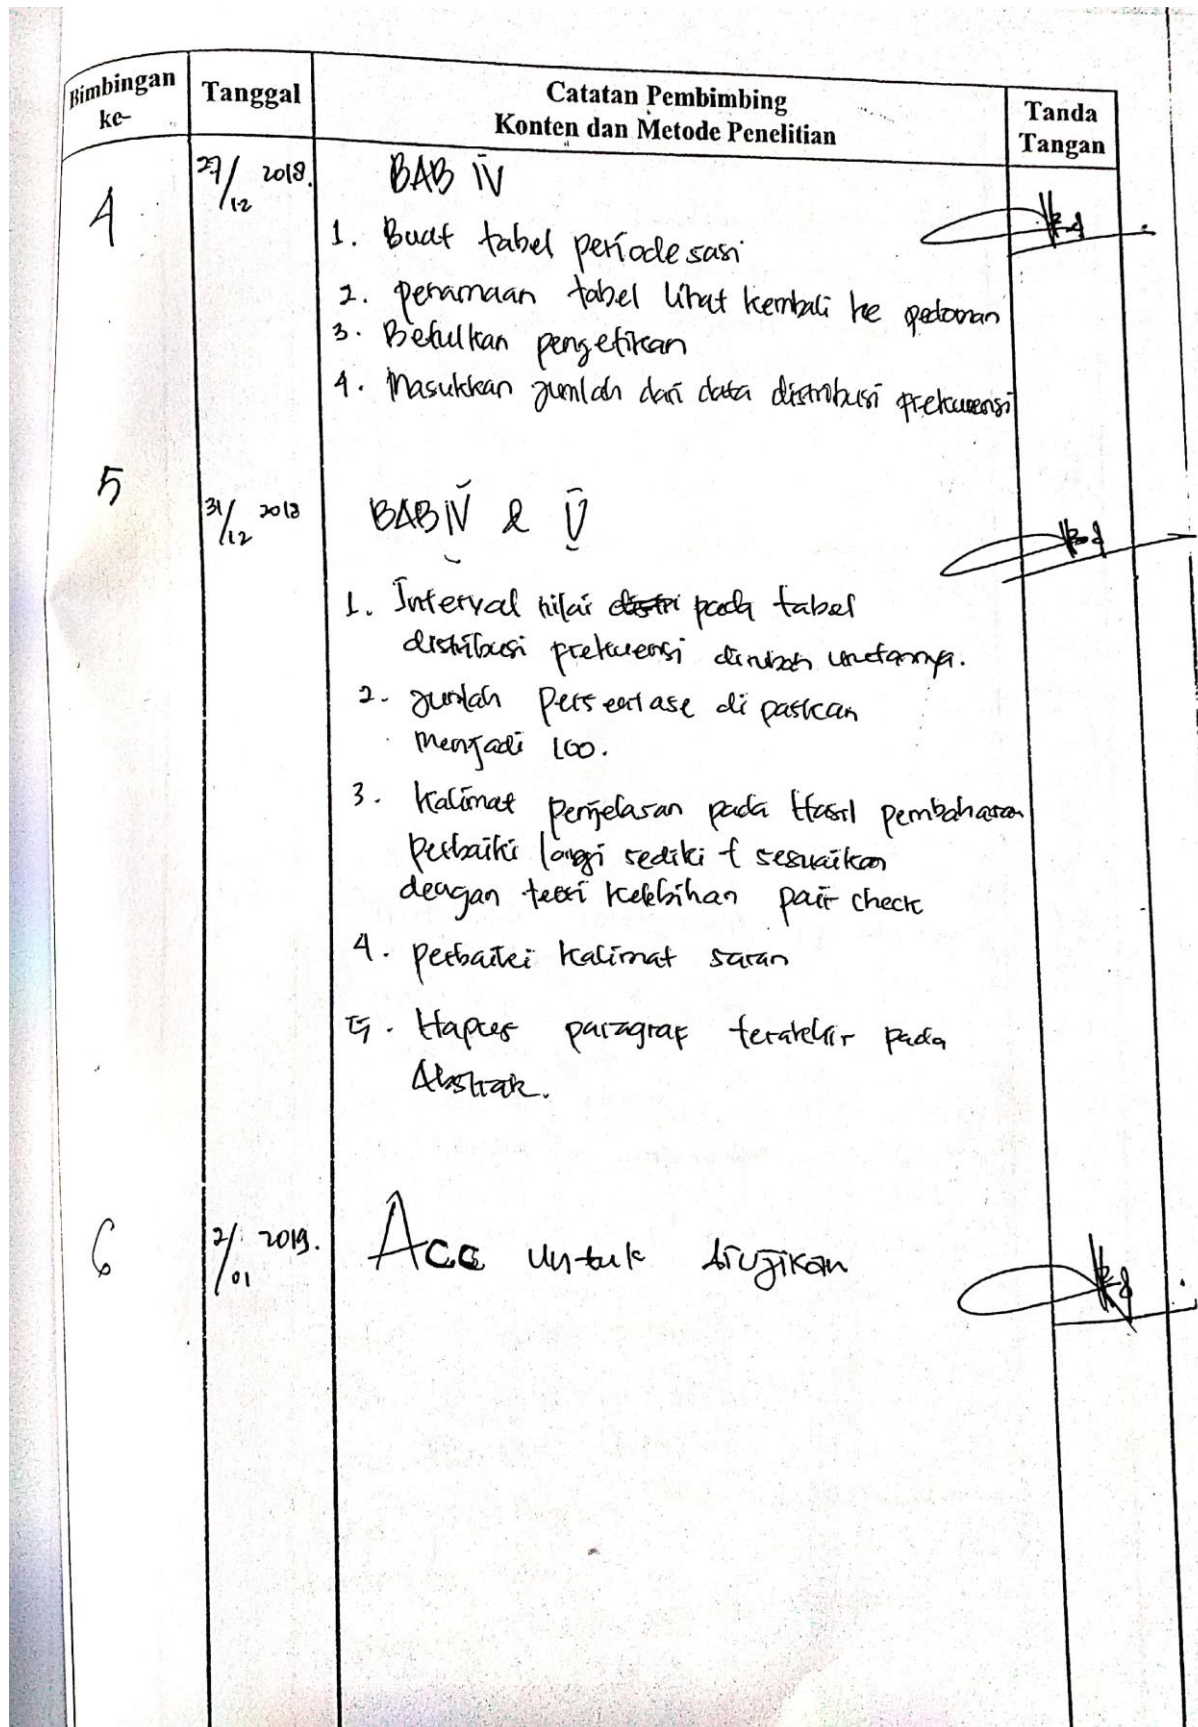 Bimbingan ke-
Tanggal
Catatan Pembimbing
Konten dan Metode Penelitian
Tanda Tangan
4
27/12 2018.
BAB IV
1. Buat tabel periodesasi
2. penamaan tabel lihat kembali ke pedoman
3. Betulkan pengetikan
4. Masukkan jumlah dari data distribusi prekuensi
5
31/12 2018
BAB IV & V
1. Interval nilai distri pada tabel
distribusi prekuensi dirubah
2. jumlah persentase di paskan
menjadi 100.
3. Kalimat penjelasan pada Hasil pembahasan
perbaiki lagi sedikit sesuaikan
dengan teori kelebihan pair check
4. perbaiki kalimat saran
5. Hapus paragraf terakhir pada
Abstrak.
6
2/01 2019.
Acc untuk diujikan